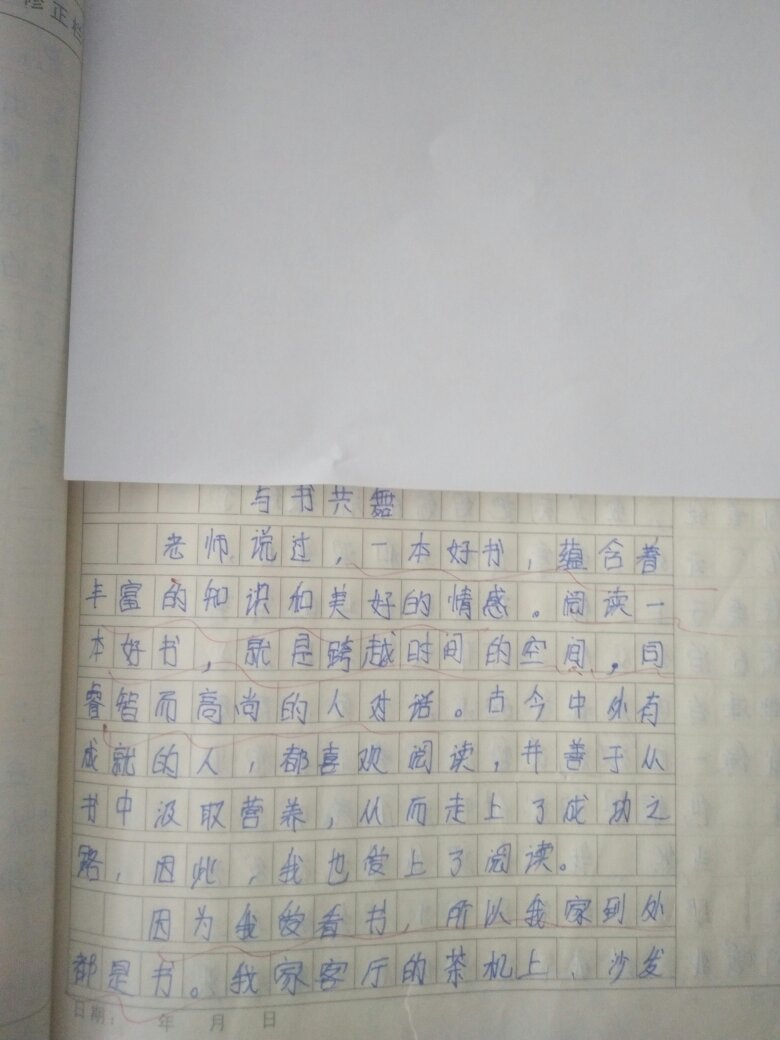 修正栏
与书共舞
老师说过，一本好书，蕴含着
丰富的知识和美好的情感。阅读一
本好书，就是跨越时间的空间，同
睿智而高尚的人对话。古今中外有
成就的人，都喜欢阅读，并善于从
书中汲取营养，从而走上了成功之
路，因此，我也爱上了阅读。
因为我爱看书，所以我家到处
都是书。我家客厅的茶机上、沙发
日期： 年 月 日